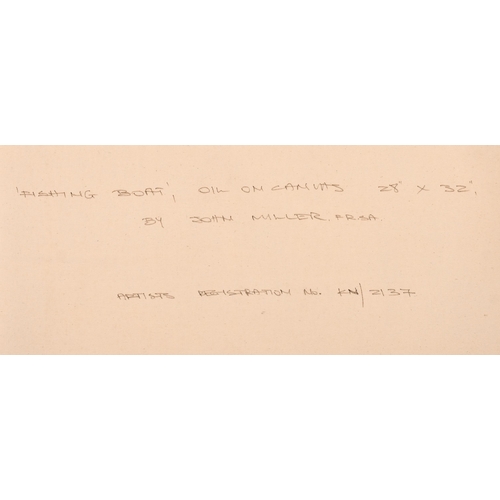 'FISHING BOAT', OIL ON CANVAS 28" X 32",
BY JOHN MILLER. FRSA.
ARTISTS REGISTRATION No. KN/2137